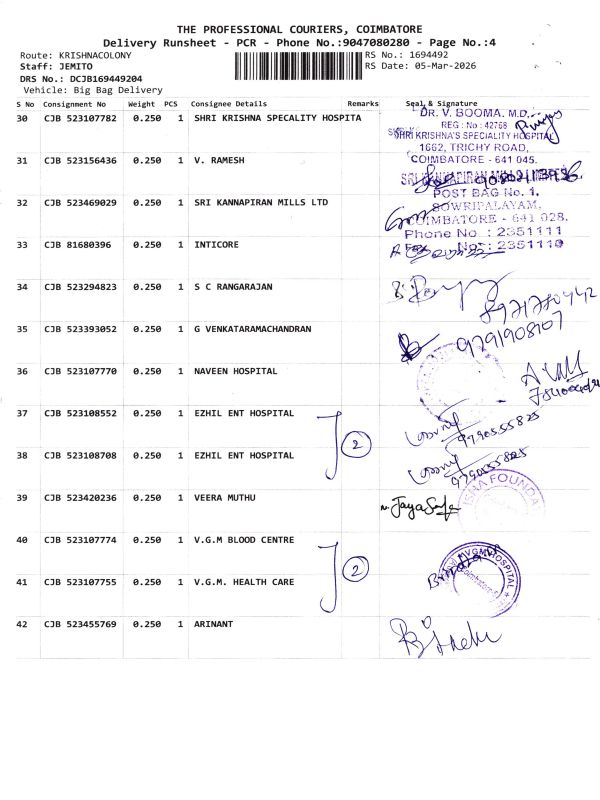 THE PROFESSIONAL COURIERS, COIMBATORE
Delivery Runsheet - PCR - Phone No.:9047080280 - Page No.:4
Route: KRISHNACOLONY
RS No.: 1694492
Staff: JEMITO
RS Date: 05-Mar-2026
DRS No.: DCJB169449204
Vehicle: Big Bag Delivery
S No Consignment No Weight PCS Consignee Details Remarks Seal & Signature
30 CJB 523107782 0.250 1 SHRI KRISHNA SPECALITY HOSPITA
DR. V. BOOMA. M.D.,
REG : No : 42768
SHRI KRISHNA'S SPECIALITY HOSPITAL
1662, TRICHY ROAD,
COIMBATORE - 641 045.
31 CJB 523156436 0.250 1 V. RAMESH
SRI KANNAPIRAN MILLS LIMITED
POST BAG No. 1,
32 CJB 523469029 0.250 1 SRI KANNAPIRAN MILLS LTD
SOWRIPALAYAM,
COIMBATORE - 641 028.
Phone No : 2351111
33 CJB 81680396 0.250 1 INTICORE
Fax No : 2351110
34 CJB 523294823 0.250 1 S C RANGARAJAN
35 CJB 523393052 0.250 1 G VENKATARAMACHANDRAN
9791908107
36 CJB 523107770 0.250 1 NAVEEN HOSPITAL
37 CJB 523108552 0.250 1 EZHIL ENT HOSPITAL
2
9790555825
38 CJB 523108708 0.250 1 EZHIL ENT HOSPITAL
9790555825
39 CJB 523420236 0.250 1 VEERA MUTHU
ISRA FOUNDA
40 CJB 523107774 0.250 1 V.G.M BLOOD CENTRE
2
VGM HOSPITAL
41 CJB 523107755 0.250 1 V.G.M. HEALTH CARE
42 CJB 523455769 0.250 1 ARINANT